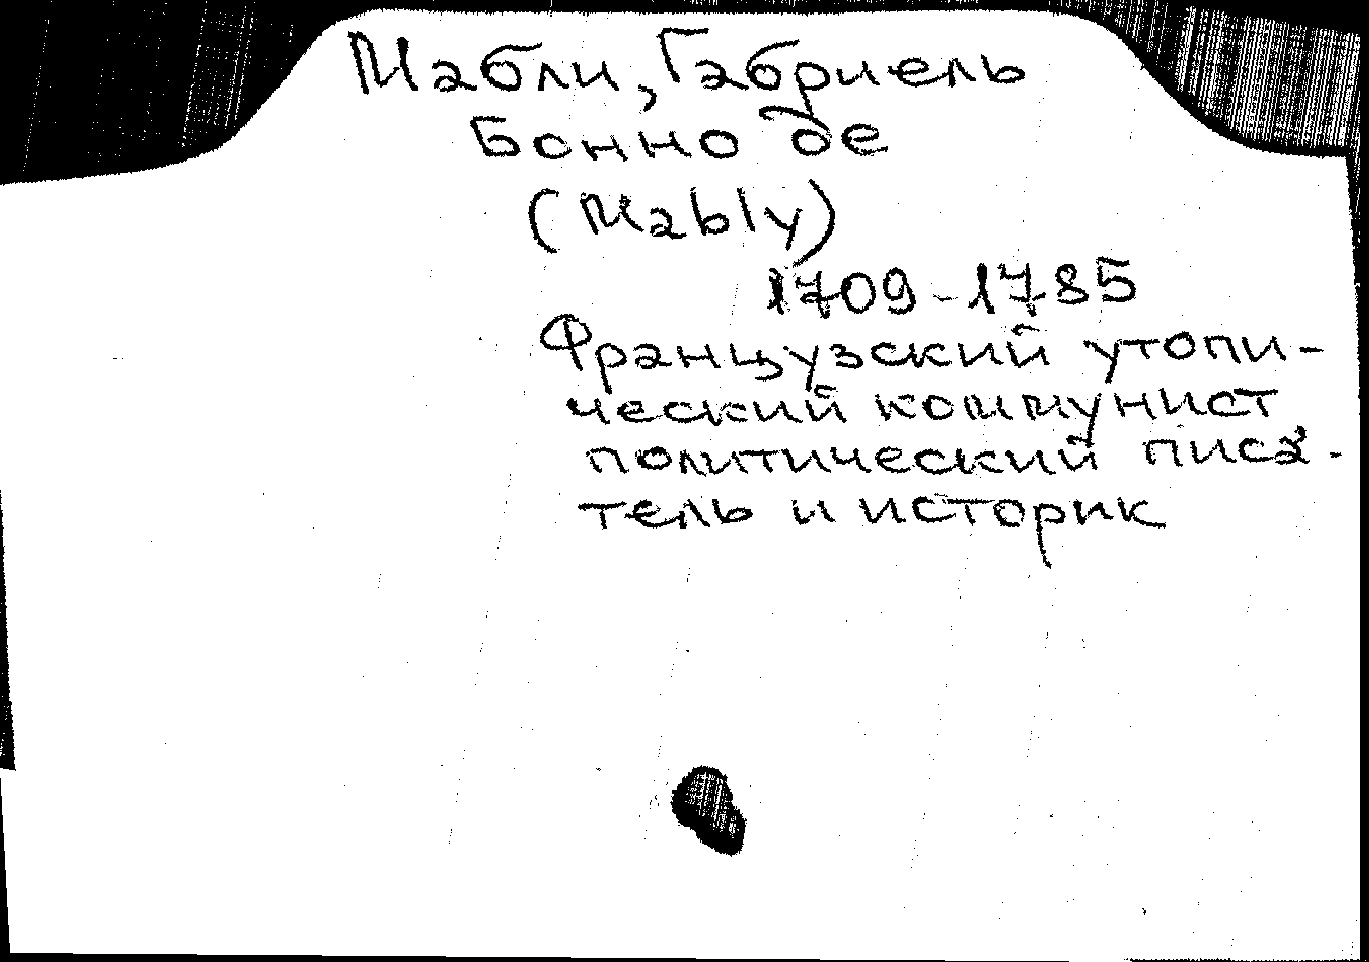 Мабли, Габриель
Бонно де
(Mably)
1709-1785
Французский утопи-
ческий коммунист
политический писа-
тель и историк